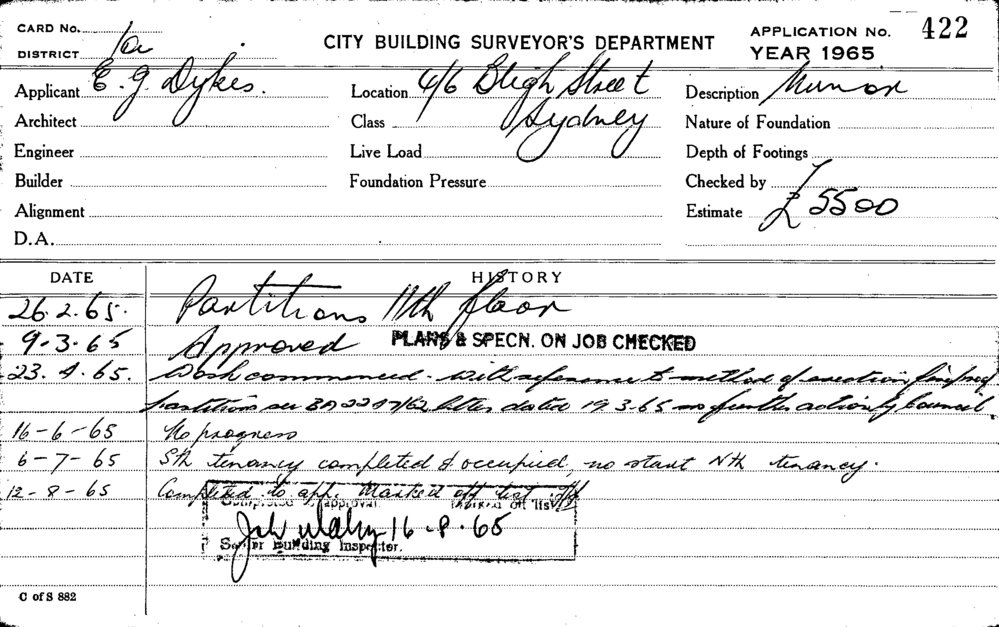 CARD No.
DISTRICT 1a
CITY BUILDING SURVEYOR'S DEPARTMENT
APPLICATION No. 422
YEAR 1965
Applicant E. G. Dykes.
Location 4/6 Bligh Street
Description Minor
Architect
Class Sydney
Nature of Foundation
Engineer
Live Load
Depth of Footings
Builder
Foundation Pressure
Checked by
Alignment
Estimate £5500
D.A.
DATE
HISTORY
26.2.65. Partitions 11th floor
9-3-65 Approved PLANS & SPECN. ON JOB CHECKED
23.4.65. Work commenced. With reference to method of erection fireproof
partitions see BA 2247/62 letter dated 19.3.65 no further action by Council.
16-6-65 No progress
6-7-65 Sth tenancy completed & occupied, no start Nth tenancy.
12-8-65 Completed to app. Marked off list
Completed to approval. Marked off list
16-8-65
Senior Building Inspector.
C of S 882